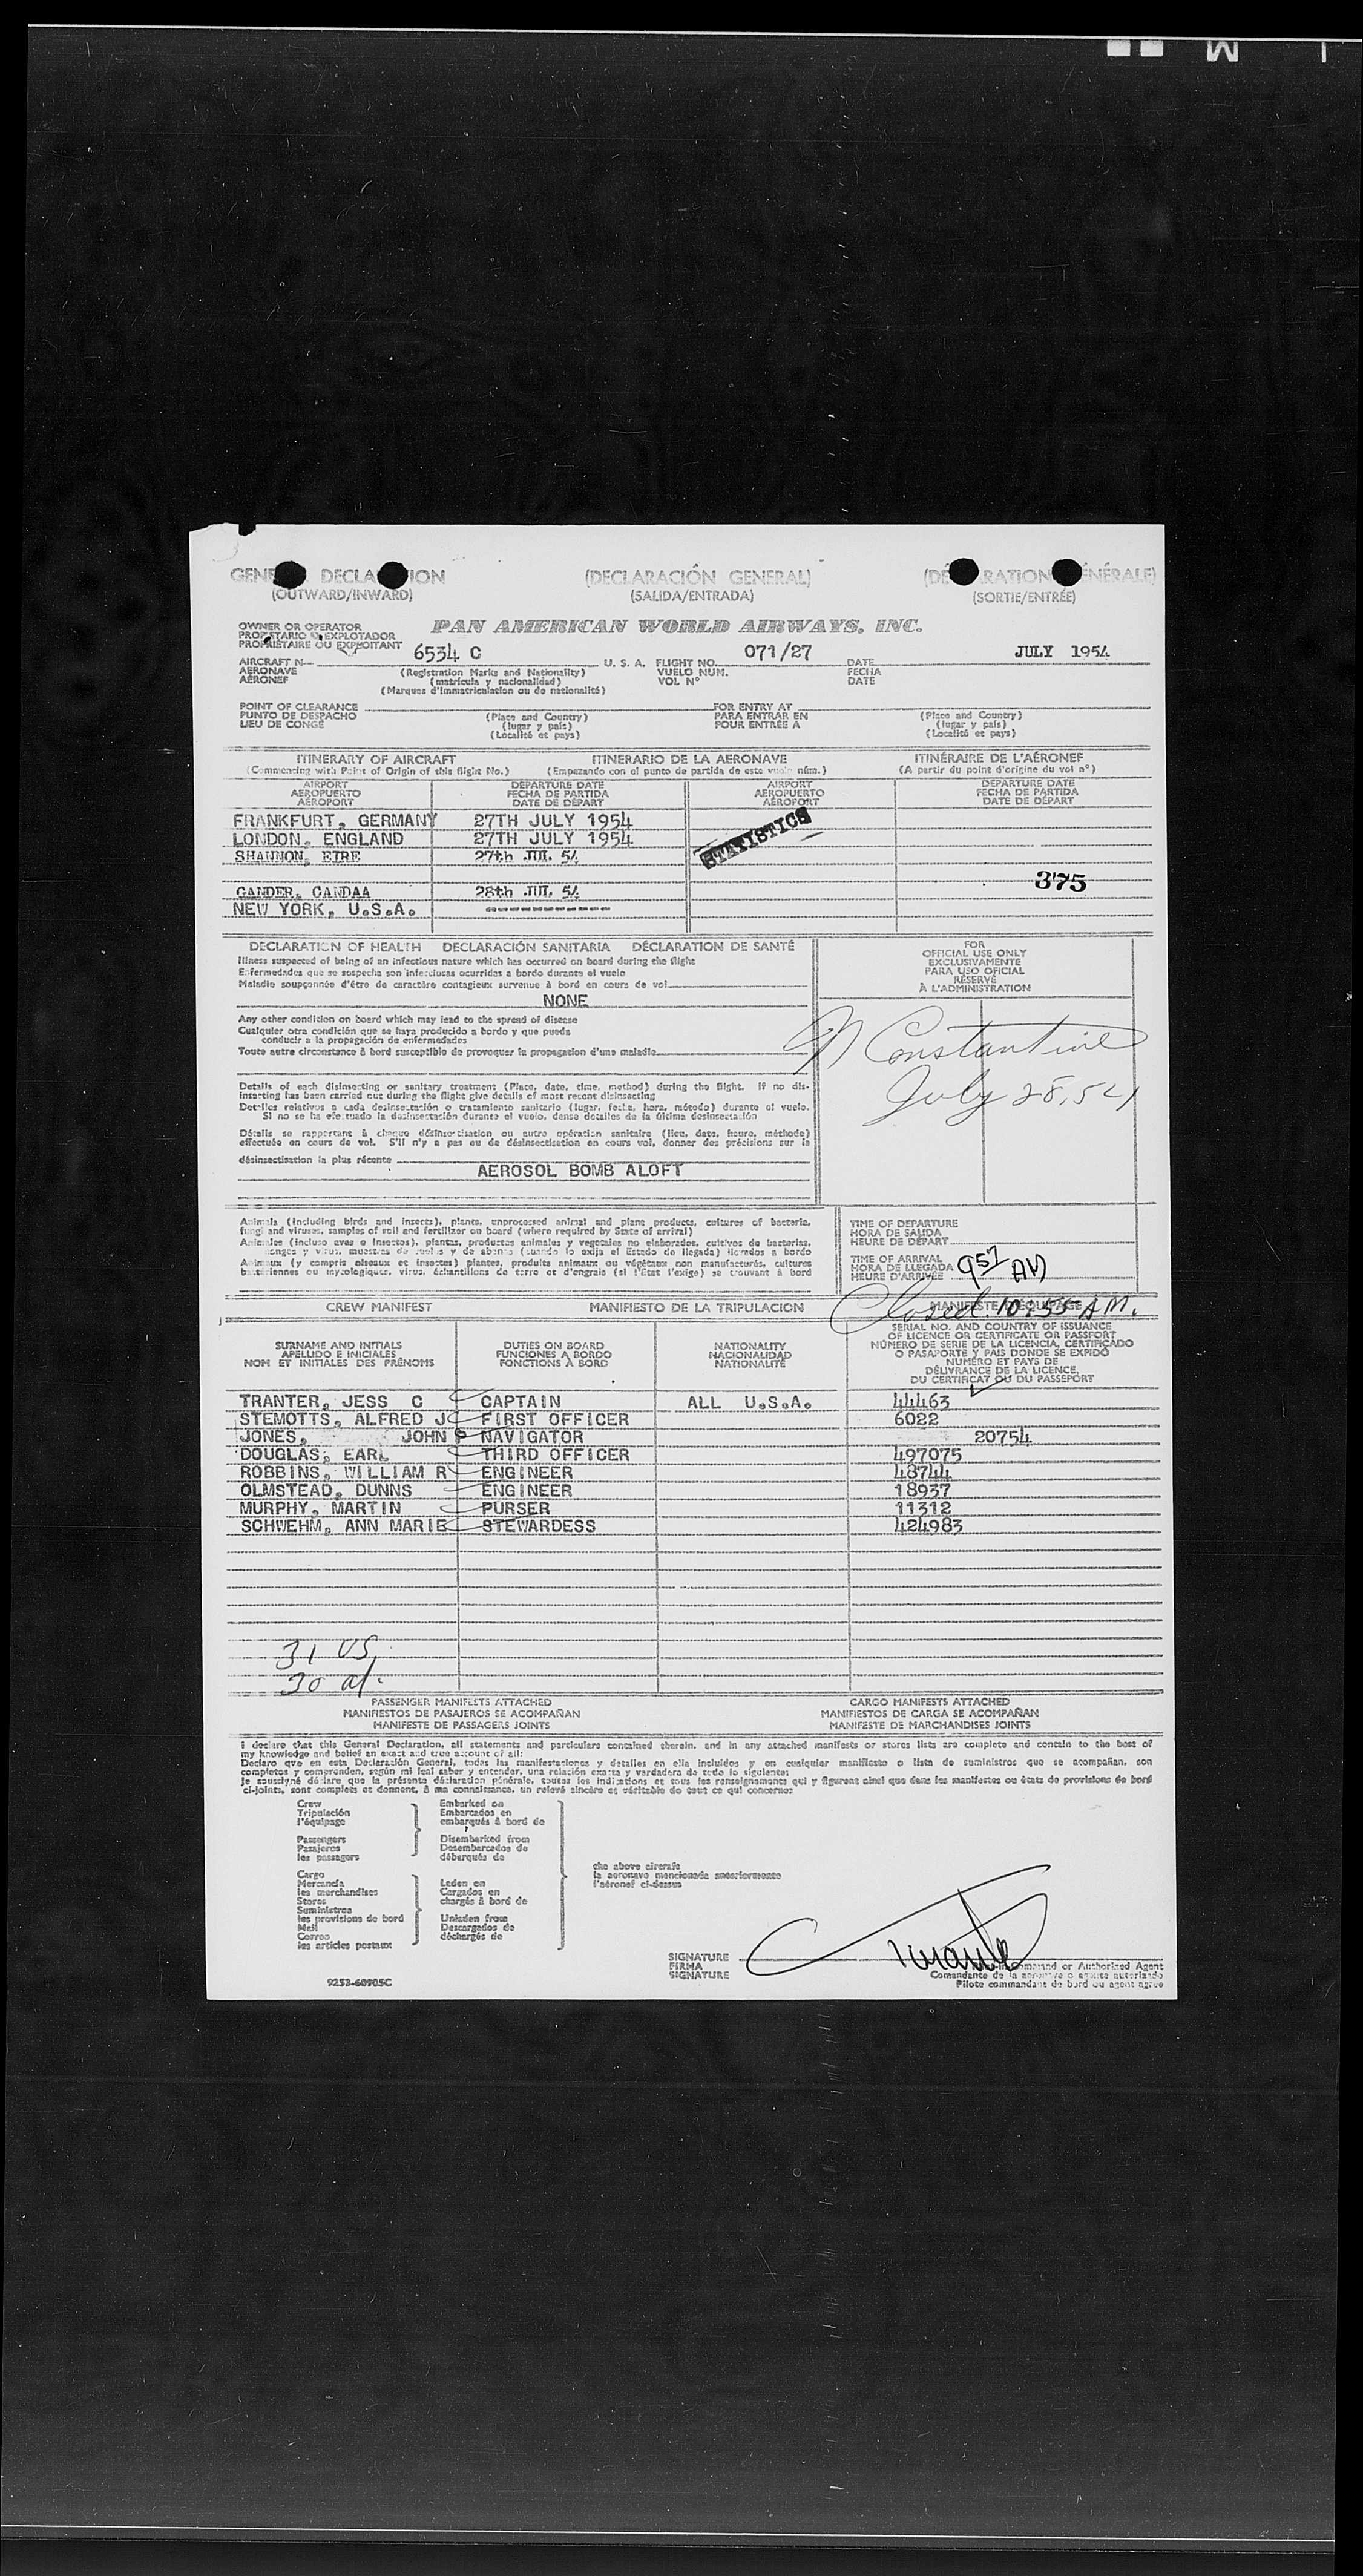 GENE DECLA ION (DECLARACIÓN GENERAL) (DÉ RATION ÉNÉRALE)
(OUTWARD/INWARD) (SALIDA/ENTRADA) (SORTIE/ENTRÉE)
OWNER OR OPERATOR
PROPIETARIO O EXPLOTADOR
PROPRIÉTAIRE OU EXPLOITANT
PAN AMERICAN WORLD AIRWAYS, INC.
AIRCRAFT N 6534 C U. S. A. FLIGHT NO. 071/27 DATE JULY 1954
AERONAVE (Registration Marks and Nationality) VUELO NUM. FECHA
AÉRONEF (matrícula y nacionalidad) VOL N° DATE
(Marques d'immatriculation ou de nationalité)
POINT OF CLEARANCE FOR ENTRY AT
PUNTO DE DESPACHO (Place and Country) PARA ENTRAR EN (Place and Country)
LIEU DE CONGÉ (lugar y país) POUR ENTRÉE A (lugar y país)
(Localité et pays) (Localité et pays)
ITINERARY OF AIRCRAFT ITINERARIO DE LA AERONAVE ITINÉRAIRE DE L'AÉRONEF
(Commencing with Point of Origin of this flight No.) (Empezando con el punto de partida de este vuelo núm.) (A partir du point d'origine du vol n°)
AIRPORT DEPARTURE DATE AIRPORT DEPARTURE DATE
AEROPUERTO FECHA DE PARTIDA AEROPUERTO FECHA DE PARTIDA
AÉROPORT DATE DE DÉPART AÉROPORT DATE DE DÉPART
FRANKFURT, GERMANY 27TH JULY 1954
LONDON, ENGLAND 27TH JULY 1954
STATISTICS
SHANNON, EIRE 27th JUL. 54
375
GANDER, CANDAA 28th JUL. 54
NEW YORK, U.S.A. ----------
DECLARATION OF HEALTH DECLARACIÓN SANITARIA DÉCLARATION DE SANTÉ
Illness suspected of being of an infectious nature which has occurred on board during the flight
Enfermedades que se sospecha son infecciosas ocurridas a bordo durante el vuelo
Maladie soupçonnée d'être de caractère contagieux survenue à bord en cours de vol
NONE
Any other condition on board which may lead to the spread of disease
Cualquier otra condición que se haya producido a bordo y que pueda
conducir a la propagación de enfermedades
Toute autre circonstance à bord susceptible de provoquer la propagation d'une maladie
Details of each disinsecting or sanitary treatment (Place, date, time, method) during the flight. If no dis-
insecting has been carried out during the flight give details of most recent disinsecting
Detalles relativos a cada desinsectación o tratamiento sanitario (lugar, fecha, hora, método) durante el vuelo.
Si no se ha efectuado la desinsectación durante el vuelo, dense detalles de la última desinsectación
Détails se rapportant à chaque désinsectisation ou autre opération sanitaire (lieu, date, heure, méthode)
effectuée en cours de vol. S'il n'y a pas eu de désinsectisation en cours vol, donner des précisions sur la
désinsectisation la plus récente
AEROSOL BOMB ALOFT
FOR
OFFICIAL USE ONLY
EXCLUSIVAMENTE
PARA USO OFICIAL
RÉSERVÉ
À L'ADMINISTRATION
Constantine
July 28, 54
Animals (including birds and insects), plants, unprocessed animal and plant products, cultures of bacteria,
fungi and viruses, samples of soil and fertilizer on board (where required by State of arrival)
Animales (incluso aves e insectos), plantas, productos animales y vegetales no elaborados, cultivos de bacterias,
hongos y virus, muestras de suelos y de abonos (cuando lo exija el Estado de llegada) llevados a bordo
Animaux (y compris oiseaux et insectes) plantes, produits animaux ou végétaux non manufacturés, cultures
bactériennes ou mycologiques, virus, échantillons de terre et d'engrais (si l'État l'exige) se trouvant à bord
TIME OF DEPARTURE
HORA DE SALIDA
HEURE DE DÉPART
TIME OF ARRIVAL
HORA DE LLEGADA
HEURE D'ARRIVÉE
957 AM
Closed 10:55 AM.
CREW MANIFEST MANIFIESTO DE LA TRIPULACION MANIFESTE D'EQUIPAGE
SURNAME AND INITIALS
APELLIDO E INICIALES
NOM ET INITIALES DES PRÉNOMS
DUTIES ON BOARD
FUNCIONES A BORDO
FONCTIONS À BORD
NATIONALITY
NACIONALIDAD
NATIONALITÉ
SERIAL NO. AND COUNTRY OF ISSUANCE
OF LICENCE OR CERTIFICATE OR PASSPORT
NÚMERO DE SERIE DE LA LICENCIA, CERTIFICADO
O PASAPORTE Y PAIS DONDE SE EXPIDÓ
NUMÉRO ET PAYS DE
DÉLIVRANCE DE LA LICENCE,
DU CERTIFICAT OU DU PASSEPORT
TRANTER, JESS C CAPTAIN ALL U.S.A. 44463
STEMOTTS, ALFRED J FIRST OFFICER 6022
JONES, JOHN P NAVIGATOR 20754
DOUGLAS, EARL THIRD OFFICER 497075
ROBBINS, WILLIAM R ENGINEER 48744
OLMSTEAD, DUNNS ENGINEER 18937
MURPHY, MARTIN PURSER 11312
SCHWEHM, ANN MARIE STEWARDESS 424983
31 US.
30 al.
PASSENGER MANIFESTS ATTACHED CARGO MANIFESTS ATTACHED
MANIFIESTOS DE PASAJEROS SE ACOMPAÑAN MANIFIESTOS DE CARGA SE ACOMPAÑAN
MANIFESTE DE PASSAGERS JOINTS MANIFESTE DE MARCHANDISES JOINTS
I declare that this General Declaration, all statements and particulars contained therein, and in any attached manifests or stores lists are complete and contain to the best of
my knowledge and belief an exact and true account of all:
Declaro que en esta Declaración General, todas las manifestaciones y detalles en ella incluidos y en cualquier manifiesto o lista de suministros que se acompañan, son
completos y comprenden, según mi leal saber y entender, una relación exacta y verdadera de todo lo siguiente:
Je soussigné déclare que la présente déclaration générale, toutes les indications et tous les renseignements qui y figurent ainsi que dans les manifestes ou états de provisions de bord
ci-joints, sont complets et donnent, à ma connaissance, un relevé sincère et véritable de tout ce qui concerne:
Crew
Tripulación
l'équipage
Passengers
Pasajeros
les passagers
Cargo
Mercancía
les marchandises
Stores
Suministros
les provisions de bord
Mail
Correo
les articles postaux
Embarked on
Embarcados en
embarqués à bord de
Disembarked from
Desembarcados de
débarqués de
Laden on
Cargados en
chargés à bord de
Unladen from
Descargados de
déchargés de
the above aircraft
la aeronave mencionada anteriormente
l'aéronef ci-dessus
SIGNATURE
FIRMA
SIGNATURE
in Command or Authorized Agent
Comandante de la aeronave o agente autorizado
Pilote commandant de bord ou agent agréé
9253-60905C